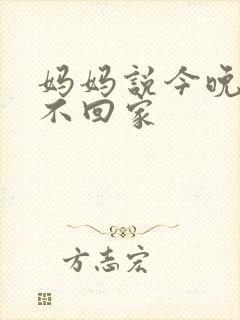 妈妈説今晚
不回家
方志宏